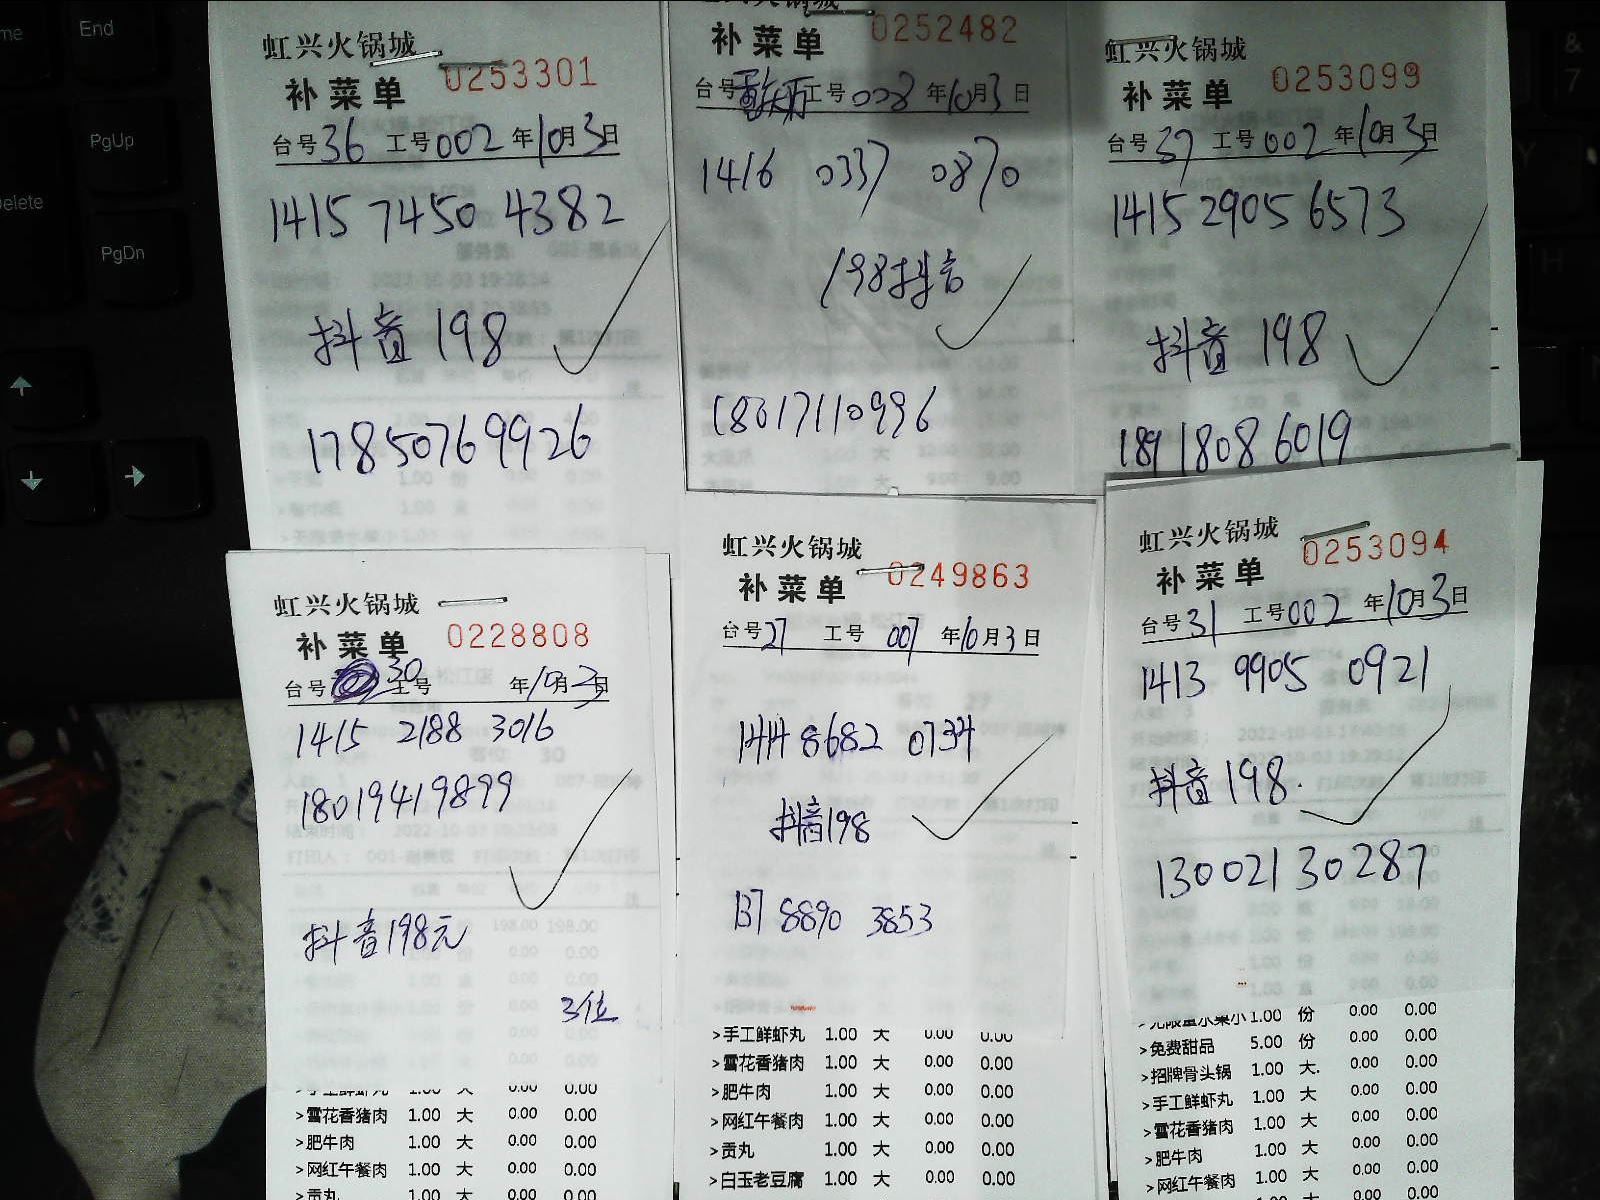 End
PgUp
PgDn
虹兴火锅城
补菜单 0253301
台号 36 工号 002 年 10月 3日
1415 7450 4382
抖音 198
17850769926
补菜单 0252482
台号 工号 008 年 10月 3日
1416 0337 0870
198抖音
18017110996
虹兴火锅城
补菜单 0253099
台号 37 工号 002 年 10月 3日
1415 2905 6573
抖音 198
189 1808 6019
虹兴火锅城
补菜单 0228808
台号 30 工号 年 10月 3日
1415 2188 3016
18019419899
抖音198元
3位
>雪花香猪肉 1.00 大 0.00 0.00
>肥牛肉 1.00 大 0.00 0.00
>网红午餐肉 1.00 大 0.00 0.00
>贡丸 1.00 大 0.00 0.00
虹兴火锅城
补菜单 0249863
台号 27 工号 007 年 10月 3日
1414 8682 0734
抖音198
137 8890 3853
>手工鲜虾丸 1.00 大 0.00 0.00
>雪花香猪肉 1.00 大 0.00 0.00
>肥牛肉 1.00 大 0.00 0.00
>网红午餐肉 1.00 大 0.00 0.00
>贡丸 1.00 大 0.00 0.00
>白玉老豆腐 1.00 大 0.00 0.00
虹兴火锅城
补菜单 0253094
台号 31 工号 002 年 10月 3日
1413 9905 0921
抖音 198.
13002130287
>无限量水果小 1.00 份 0.00 0.00
>免费甜品 5.00 份 0.00 0.00
>招牌骨头锅 1.00 大. 0.00 0.00
>手工鲜虾丸 1.00 大 0.00 0.00
>雪花香猪肉 1.00 大 0.00 0.00
>肥牛肉 1.00 大 0.00 0.00
>网红午餐肉 1.00 大 0.00 0.00